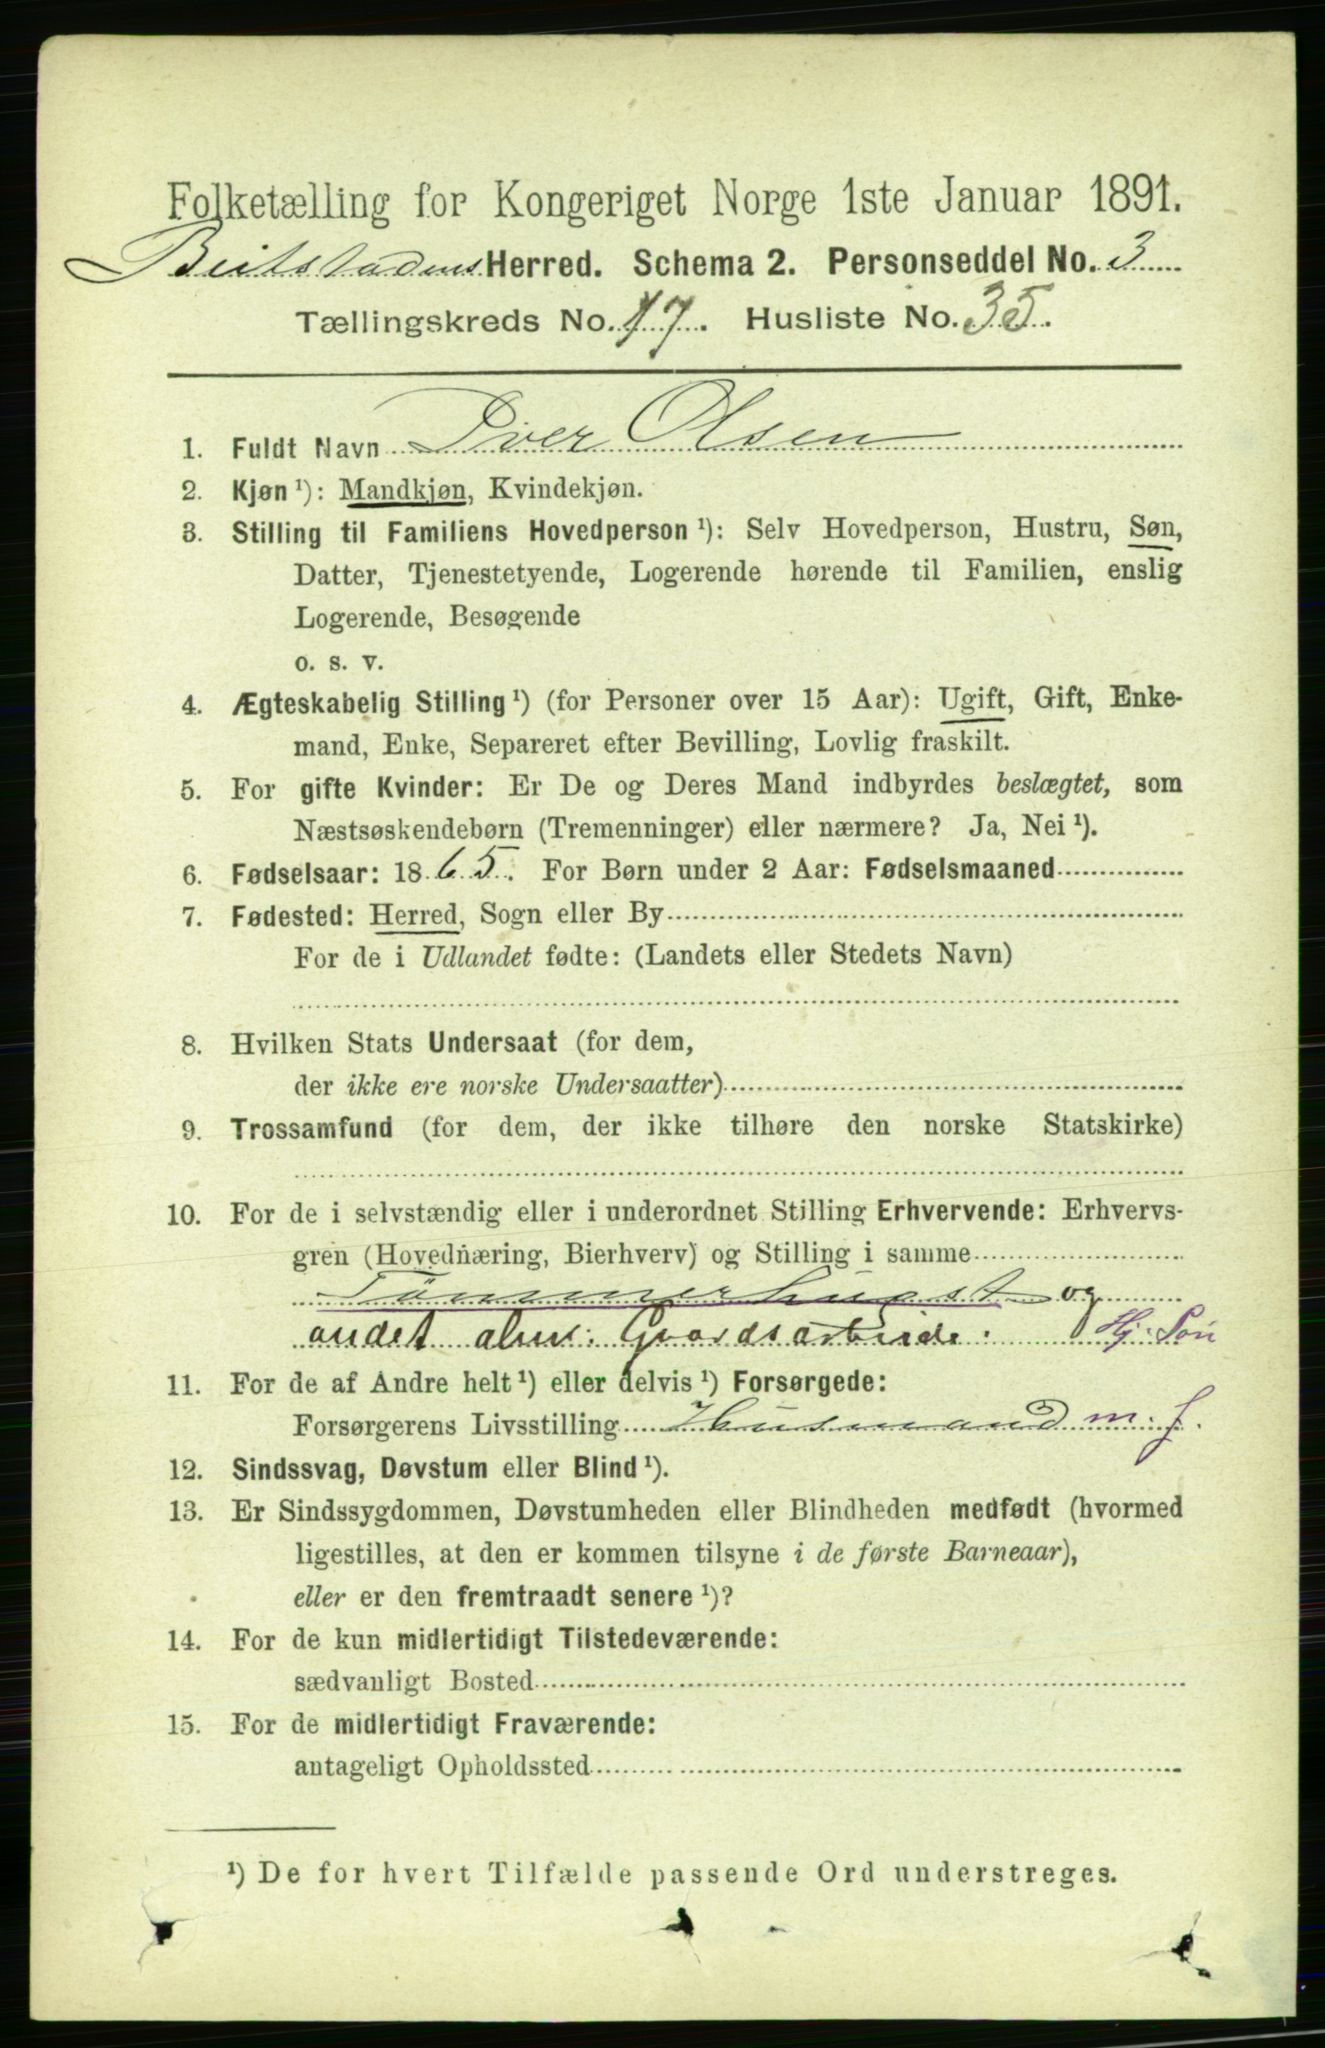 Folketælling for Kongeriget Norge 1ste Januar 1891.
Beitstadens Herred. Schema 2. Personseddel No. 3
Tællingskreds No. 17. Husliste No. 35.
1. Fuldt Navn Iver Olsen
2. Kjøn ¹): Mandkjøn, Kvindekjøn.
3. Stilling til Familiens Hovedperson ¹): Selv Hovedperson, Hustru, Søn,
Datter, Tjenestetyende, Logerende hørende til Familien, enslig
Logerende, Besøgende
o. s. v.
4. Ægteskabelig Stilling ¹) (for Personer over 15 Aar): Ugift, Gift, Enke-
mand, Enke, Separeret efter Bevilling, Lovlig fraskilt.
5. For gifte Kvinder: Er De og Deres Mand indbyrdes beslægtet, som
Næstsøskendebørn (Tremenninger) eller nærmere? Ja, Nei ¹).
6. Fødselsaar: 1865. For Børn under 2 Aar: Fødselsmaaned
7. Fødested: Herred, Sogn eller By
For de i Udlandet fødte: (Landets eller Stedets Navn)
8. Hvilken Stats Undersaat (for dem,
der ikke ere norske Undersaatter)
9. Trossamfund (for dem, der ikke tilhøre den norske Statskirke)
10. For de i selvstændig eller i underordnet Stilling Erhvervende: Erhvervs-
gren (Hovednæring, Bierhverv) og Stilling i samme
Tømmerhugst og
andet alm: Gaardsarbeide. Hj. Søn
11. For de af Andre helt ¹) eller delvis ¹) Forsørgede:
Forsørgerens Livsstilling Husmand m. J.
12. Sindssvag, Døvstum eller Blind ¹).
13. Er Sindssygdommen, Døvstumheden eller Blindheden medfødt (hvormed
ligestilles, at den er kommen tilsyne i de første Barneaar),
eller er den fremtraadt senere ¹)?
14. For de kun midlertidigt Tilstedeværende:
sædvanligt Bosted
15. For de midlertidigt Fraværende:
antageligt Opholdssted
¹) De for hvert Tilfælde passende Ord understreges.